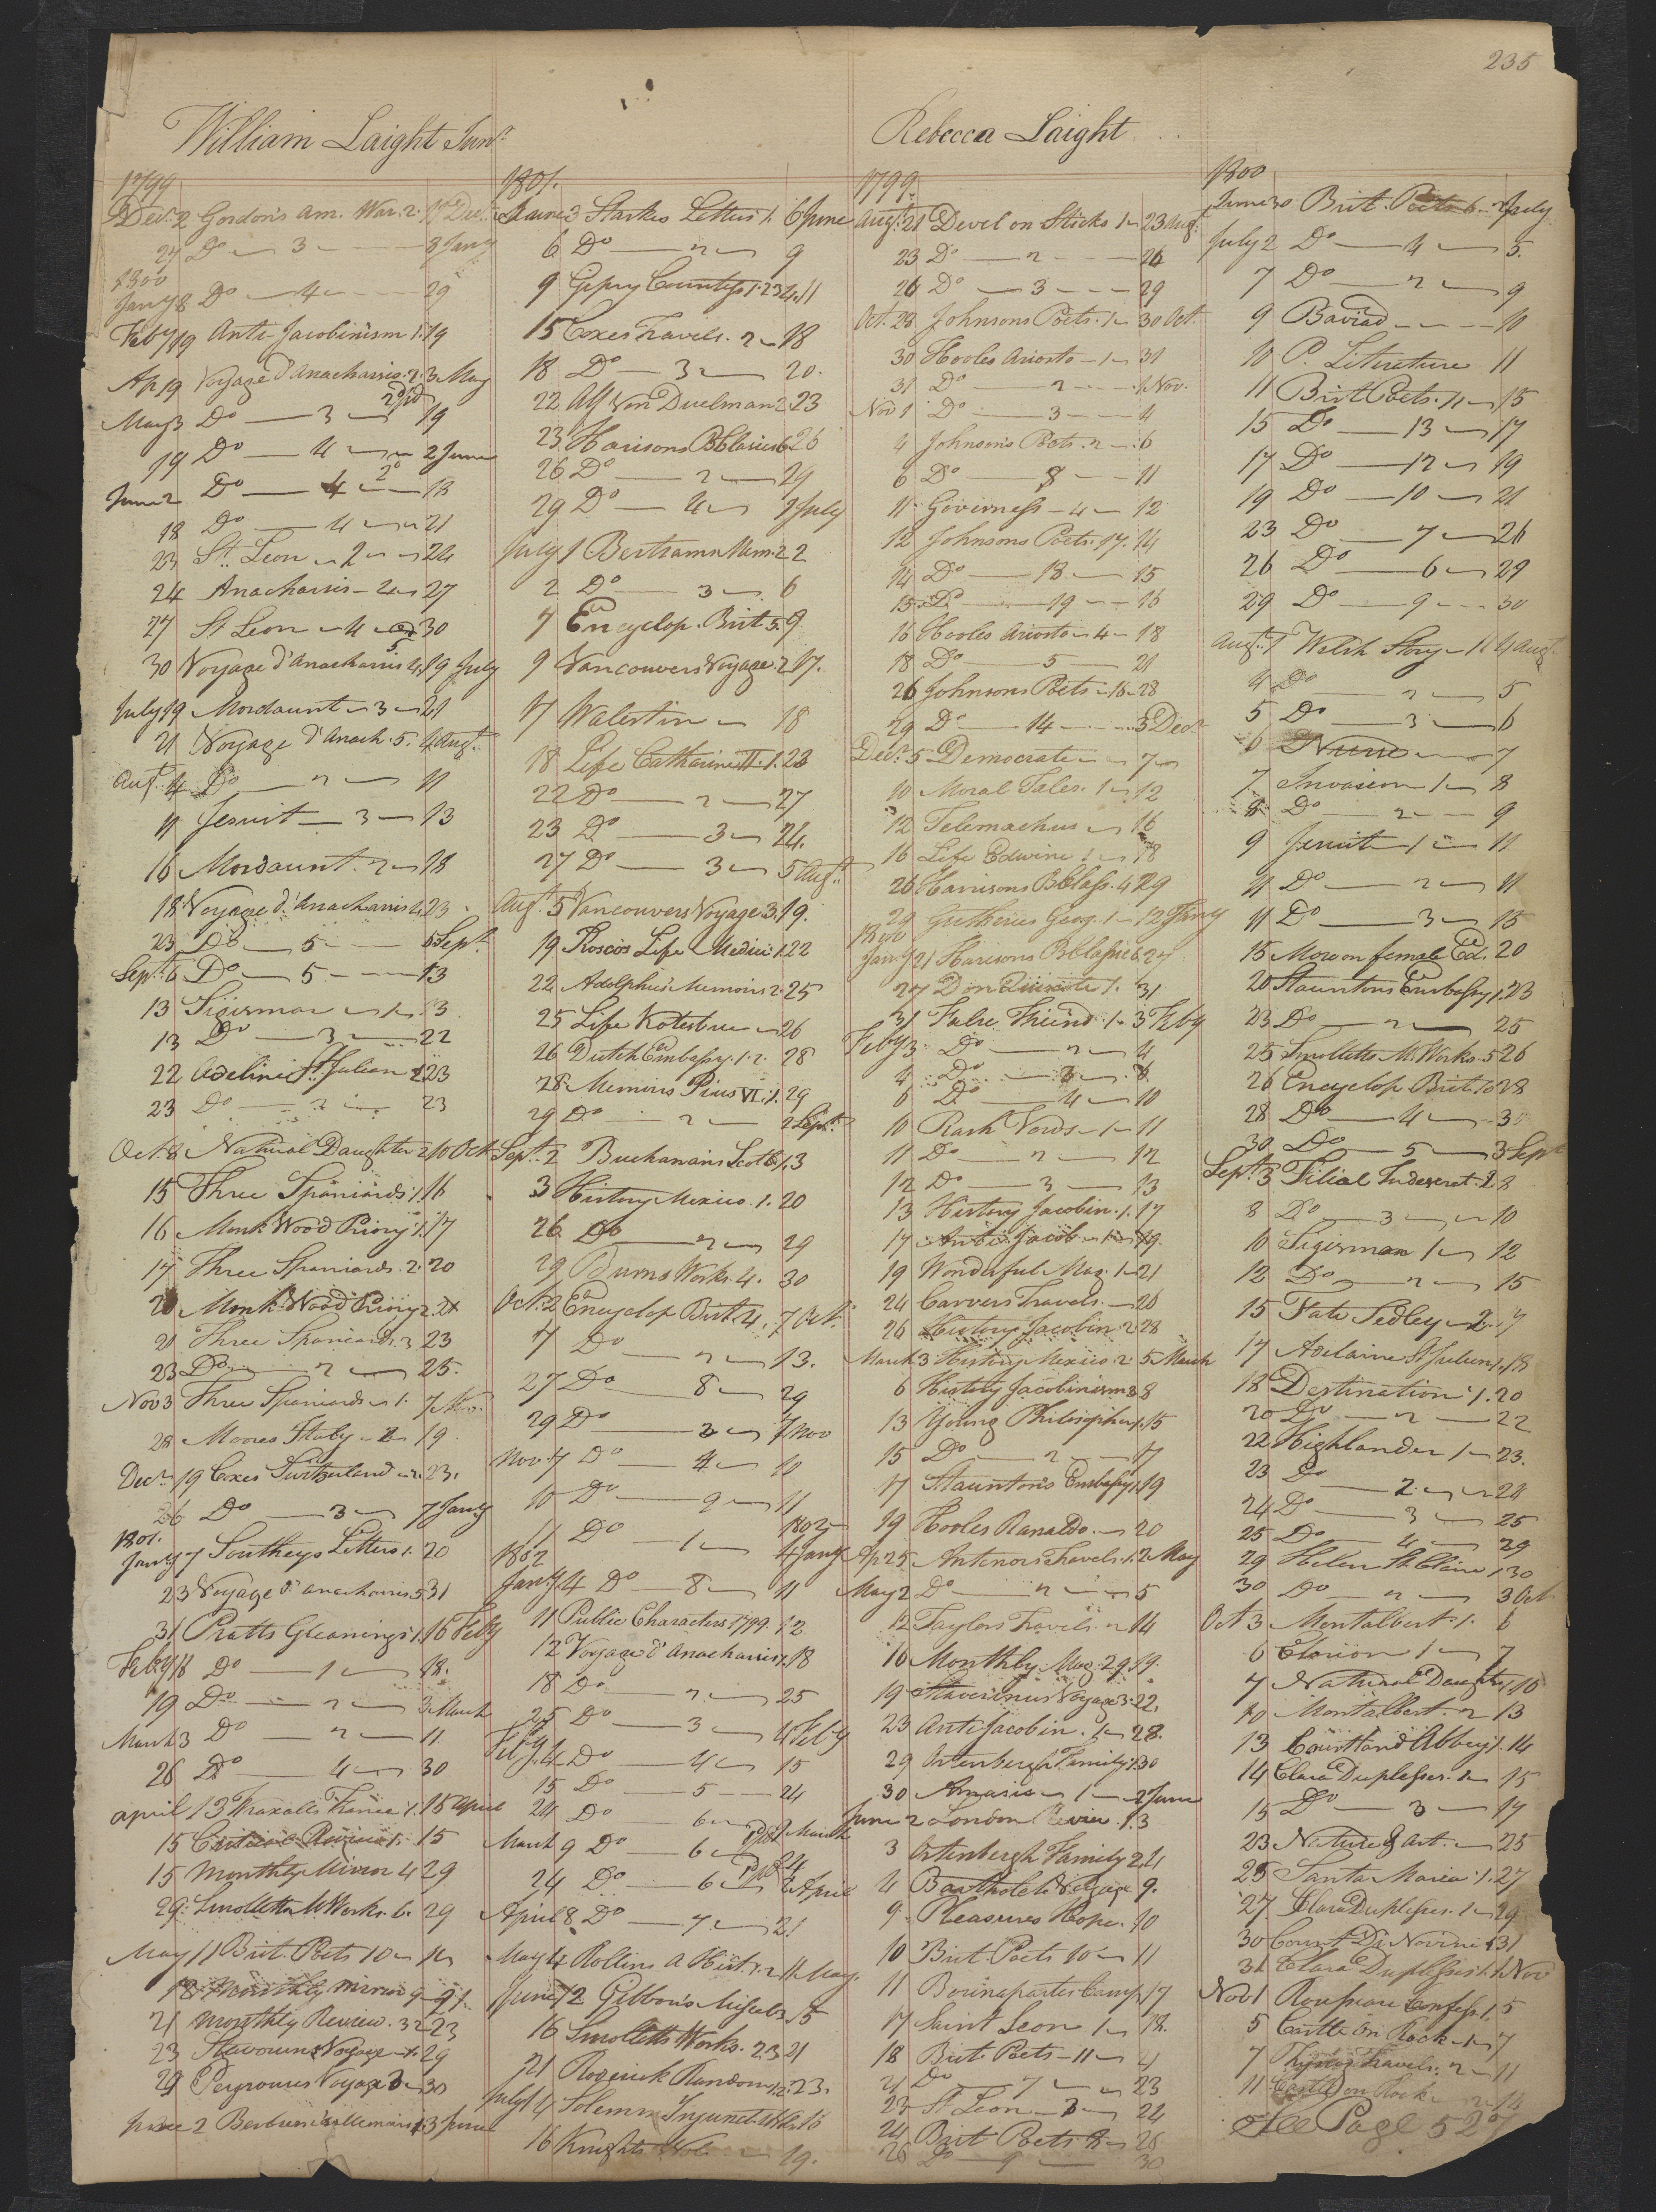 235
William Laight Junr.
1799
Decr. 2 Gordon's Am. War. 2. 27 Decr.
27 Do — 3 — 8 Jany
1800
Jany 8 Do — 4 — 29
Feby 19 Anti-Jacobinism 1. 19
Ap 19 Voyage d'Anacharsis. 2. 3 May
May 3 Do — 3 — 19
19 Do — 4 — 2 June
June 2 Do — 4 — 18
18 Do — 4 — 21
23 St. Leon — 2 — 24
24 Anacharsis — 2 — 27
27 St Leon — 4 — 30
30 Voyage d'Anacharsis 4. 19 July
July 19 Mordaunt — 3 — 21
21 Voyage d'Anach. 5. 4 Augt.
Augt. 4 Do — 2 — 11
11 Jesuit — 3 — 13
16 Mordaunt. 2 — 18
18 Voyage d'Anacharsis 4. 23
23 Do — 5 — 6 Sept.
Sept. 6 Do — 5 — 13
13 Sigismar — 1 — 13
13 Do — 3 — 22
22 Adeline St. Julian 1 23
23 Do — 2 — 23
Oct. 8 Natural Daughter 2 10 Oct
15 Three Spaniards. 1. 16
16 Monk Wood Priory. 1. 17
17 Three Spaniards. 2. 20
20 Monk Wood Priory 2. 21
21 Three Spaniards. 3 23
23 Do — 2 — 25.
Nov 3 Three Spaniards — 1. 7 Nov.
28 Moores Italy — 2 — 19
Decr. 19 Coxes Switzerland — 2. 23.
26 Do — 3 — 7 Jany
1801.
Jany 7 Southeys Letters 1. 20
23 Voyage d'anacharsis. 5 31
31 Pratts Gleanings 1. 16 Feby
Feby 16 Do — 1 — 18.
19 Do — 2 — 3 March
March 3 Do — 2 — 11
26 Do — 4 — 30
april 13 Wraxalls France 1. 15 april
15 Critical Review 1. 15
15 Monthly Mirror 4 29
29. Smolletts M Works. 6. 29
May 11 Brit. Poets 10 —
18 Monthly Mirror 9 — 21
21 Monthly Review. 32 23
23 Stavorinus Voyage — 1. 29
29 Peyrouses Voyage 3 — 30
June 2 3 June
1801.
June 3 Starkes Letters 1. 6 June
6 Do — 2 — 9
9 Gipsy Countess 1. 2 3 4. 11
15 Coxes Travels. 2 — 18
18 Do — 3 — 20.
22 Alf Von Duelman 2. 23
23 Harisons B Classics 6 26
26 Do — 2 — 29
29 Do — 4 — 1 July
July 1 Bertrams Mem. 2 2
2 Do — 3 — 6
7 Encyclop. Brit. 5. 9
9 Vancouvers Voyage. 2 17.
17 Walestin — 18
18 Life Catharine II. 1. 23
22 Do — 2 — 27
23 Do — 3 — 24.
27 Do — 3 — 5 Augt.
Augt. 5 Vancouvers Voyage 3. 19.
19 Roscos Life Medici 1. 22
22 Adolphus Memoirs 2. 25
25 Life Kotzebue — 26
26 Dutch Embassy. 1. 2. 28
28 Memoirs Pius VI. 1. 29
29 Do — 2 — 2 Sept.
Sept. 2 Buchanans Scotld. 1. 3
3 History Mexico. 1. 20
26 Do — 2 — 29
29 Burns Works. 4. 30
Oct. 2 Encyclop Brit 4. 7 Oct.
7 Do — 2 — 13.
27 Do — 8 — 29
29 Do — 3 — 7 Nov
Nov. 7 Do — 4 — 10
10 Do — 9 — 11
11 Do — 1 — 1802 4 Jany
1802
Jany 4 Do — 8 — 11
11 Public Characters 1799. 12
12 Voyage d'Anacharsis 1. 18
18 Do — 2 — 25
25 Do — 3 — 4 Feby
Feby 4 Do — 4 — 15
15 Do — 5 — 24
24 Do — 6 — March
March 9 Do — 6 — 24
24 Do — 6 — 8 April
April 8 Do — 7 — 21
May 4 Rollins A Hist. 1. 2 11 May
June 12 Gibbons Miscel. 15
16 Smolletts Works. 2. 3 21
21 Roderick Random 1. 2. 23.
July 14 Solemn Injunct. 16
16 Knights — 19.
Rebecca Laight
1799.
Augt. 21 Devil on Sticks 1 — 23 Augt.
23 Do — 2 — 26
26 Do — 3 — 29
Oct. 28 Johnsons Poets. 1 — 30 Oct.
30 Hooles Ariosto — 1 — 31
31 Do — 2 — 1 Nov.
Nov 1 Do — 3 — 4
4 Johnsons Poets. 2 — 6
6 Do — 8 — 11
11 Governess — 4 — 12
12 Johnsons Poets. 17. 14
14 Do — 18 — 15
15 Do — 19 — 16
16 Hooles Ariosto — 4 — 18
18 Do — 5 — 21
26 Johnsons Poets — 16 — 28
29 Do — 14 — 5 Decr
Decr. 5 Democrate — 7
10 Moral Tales. 1 — 12
12 Telemachus — 16
16 Life Edwin 1 — 18
26 Harrisons B Class. 4 29
29 Guthries Geog. 1 — 12 Jany
1800
Jany 21 Harisons B Classics 6 27
27 Don Quixote 1. 31
31 False Friend. 1 — 3 Feby
Feby 3 Do — 2 — 4
4 Do — 3 — 6
6 Do — 4 — 10
10 Rash Vows — 1 — 11
11 Do — 2 — 12
12 Do — 3 — 13
13 History Jacobin. 1. 17
17 Anti Jacob — 1 — 19.
19 Wonderful Mag. 1 — 21
24 Carvers Travels. — 26
26 History Jacobin 2. 28
March 3 History Mexico. 2. 5 March
6 History Jacobinism 3 8
13 Young Philosopher 1. 15
15 Do — 2 — 17
17 Stauntons Embassy 1. 19
19 Hooles Ranaldo. — 20
Ap 25 Antenors Travels. 1. 2 May
May 2 Do — 2 — 5
12 Taylors Travels. 2 14
16 Monthly Mag. 29 19.
19 Stavorinus Voyage 3. 22.
23 Anti Jacobin. 1 — 28.
29 Ortenbergh Family 1. 30
30 Amasia — 1 — 2 June
June 2 London Review. 1. 3
3 Ortenbergh Family 2. 4
4 9.
9 Pleasures Hope. 10
10 Brit. Poets 10 — 11
11 Bounapartes Camp. 17
17 Saint Leon 1 — 18.
18 Brit. Poets — 11 — 21
21 Do — 7 — 23
23 St Leon — 3 — 24
24 Brit Poets 8 — 26
26 Do — 9 — 30
1800
June 30 Brit. Poets 6 — 2 July
July 2 Do — 4 — 5.
7 Do — 2 — 9
9 Baviad — 10
10 P. Literature 11
11 Brit Poets. 11 — 15
15 Do — 13 — 17
17 Do — 12 — 19
19 Do — 10 — 21
23 Do — 7 — 26
26 Do — 6 — 29
29 Do — 9 — 30
Augt. 1 Welsh Story — 1 4 Augt.
4 Do — 2 — 5
5 Do — 3 — 6
6 — 7
7 Invasion 1 — 8
8 Do — 2 — 9
9 Jesuit 1 — 11
11 Do — 2 — 11
11 Do — 3 — 15
15 More on female Ed. 20
20 Stauntons Embassy 1. 23
23 Do — 2 — 25
25 Smolletts M. Works. 5 26
26 Encyclop Brit. 10 28
28 Do — 4 — 30
30 Do — 5 — 3 Sept
Sept. 3 Filial Indescret. 1. 8
8 Do — 3 — 10
10 Sigismar 1 — 12
12 Do — 2 — 15
15 Fate Sedley — 2. 17
17 Adelaine St Julien 1. 18
18 Destination. 1. 20
20 Do — 2 — 22
22 Highlander 1 — 23.
23 Do — 2 — 24
24 Do — 3 — 25
25 Do — 4 — 29
29 Helen St. Claire 1 30
30 Do — 2 — 3 Oct
Oct 3 Montalbert. 1. 6
6 1 — 7
7 Natural Daughter 1. 10
10 Montalbert. 2 13
13 Courtland Abbey 1. 14
14 Clara Duplesses. 1 — 15
15 Do — 3 — 17
23 Nature & Art. — 25
25 Santa Maria. 1. 27
27. Clara Duplesses. 1 — 29
30 Count Di Novini 1 31
31 Clara Duplesses 1. 1 Nov
Nov 1 Rousseau Confess. 1. 5
5 Castle on Rock — 1 — 7
7 Travels. 2 — 11
11 Castle on Rock 2 — 14
See Page 527